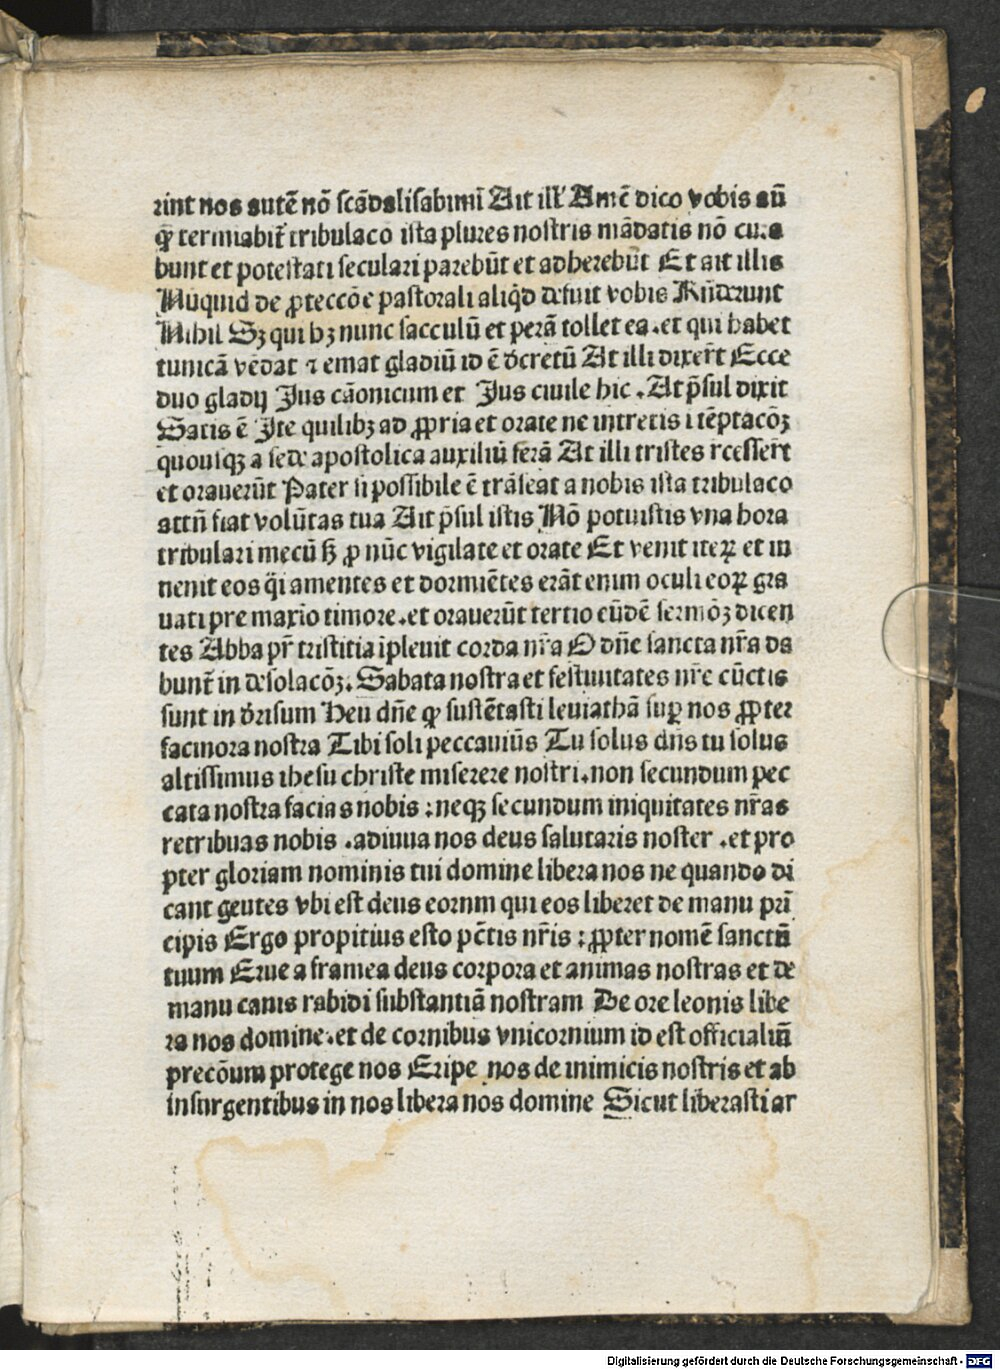 rint nos autē nō scādalisabimī Ait ill' Amē dico vobis aū
q̄ termiabit̄ tribulaco ista plures nostris mādatis nō cura
bunt et potestati seculari parebūt et adherebūt Et ait illis
Nūquid de ꝓteccōe pastorali aliq̄d defuit vobis Rn̄derunt
Nihil Sꝫ qui hꝫ nunc sacculū et perā tollet ea .et qui habet
tunicā vēdat ⁊ emat gladiū id ē dcretū At illi dixer̄t Ecce
duo gladij Jus cāonicum et Jus ciuile hic .At p̄sul dixit
Satis ē Jte quilibꝫ ad ꝓpria et orate ne intretis i tēptacōꝫ
quousqꝫ a sede apostolica auxiliū ferā At illi tristes rcesser̄t
et orauerūt Pater si possibile ē trāseat a nobis ista tribulaco
attn̄ fiat volūtas tua Ait p̄sul istis Nō potuistis vna hora
tribulari mecū sꝫ ꝓ nūc vigilate et orate Et venit iteꝝ et in
uenit eos q̄i amentes et dormiētes erāt enim oculi eoꝝ gra
uati pre maxīo timore .et orauerūt tertio eūdē sermōꝫ dicen
tes Abba pr̄ tristitia īpleuit corda nr̄a O dn̄e sancta nr̄a da
bunt̄ in desolacōꝫ. Sabata nostra et festiuitates nr̄e cūctis
sunt in drisum Heu dn̄e q̄ sustētasti leuiathā suꝑ nos ꝓpter
facinora nostra Tibi soli peccauiūs Tu solus dn̄s tu solus
altissimus ihesu christe miserere nostri .non secundum pec
cata nostra facias nobis : neqꝫ secundum iniquitates nr̄as
retribuas nobis .adiuua nos deus salutaris noster .et pro
pter gloriam nominis tui domine libera nos ne quando di
cant geutes vbi est deus eornm qui eos liberet de manu prī
cipis Ergo propitius esto pc̄tis nr̄is : ꝓpter nomē sanctū
tuum Erue a framea deus corpora et animas nostras et de
manu canis rabidi substantiā nostram De ore leonis libe
ra nos domine .et de cornibus vnicornium id est officialiū
precōum protege nos Eripe nos de inimicis nostris et ab
insurgentibus in nos libera nos domine Sicut liberasti ar
Digitalisierung gefördert durch die Deutsche Forschungsgemeinschaft - DFG